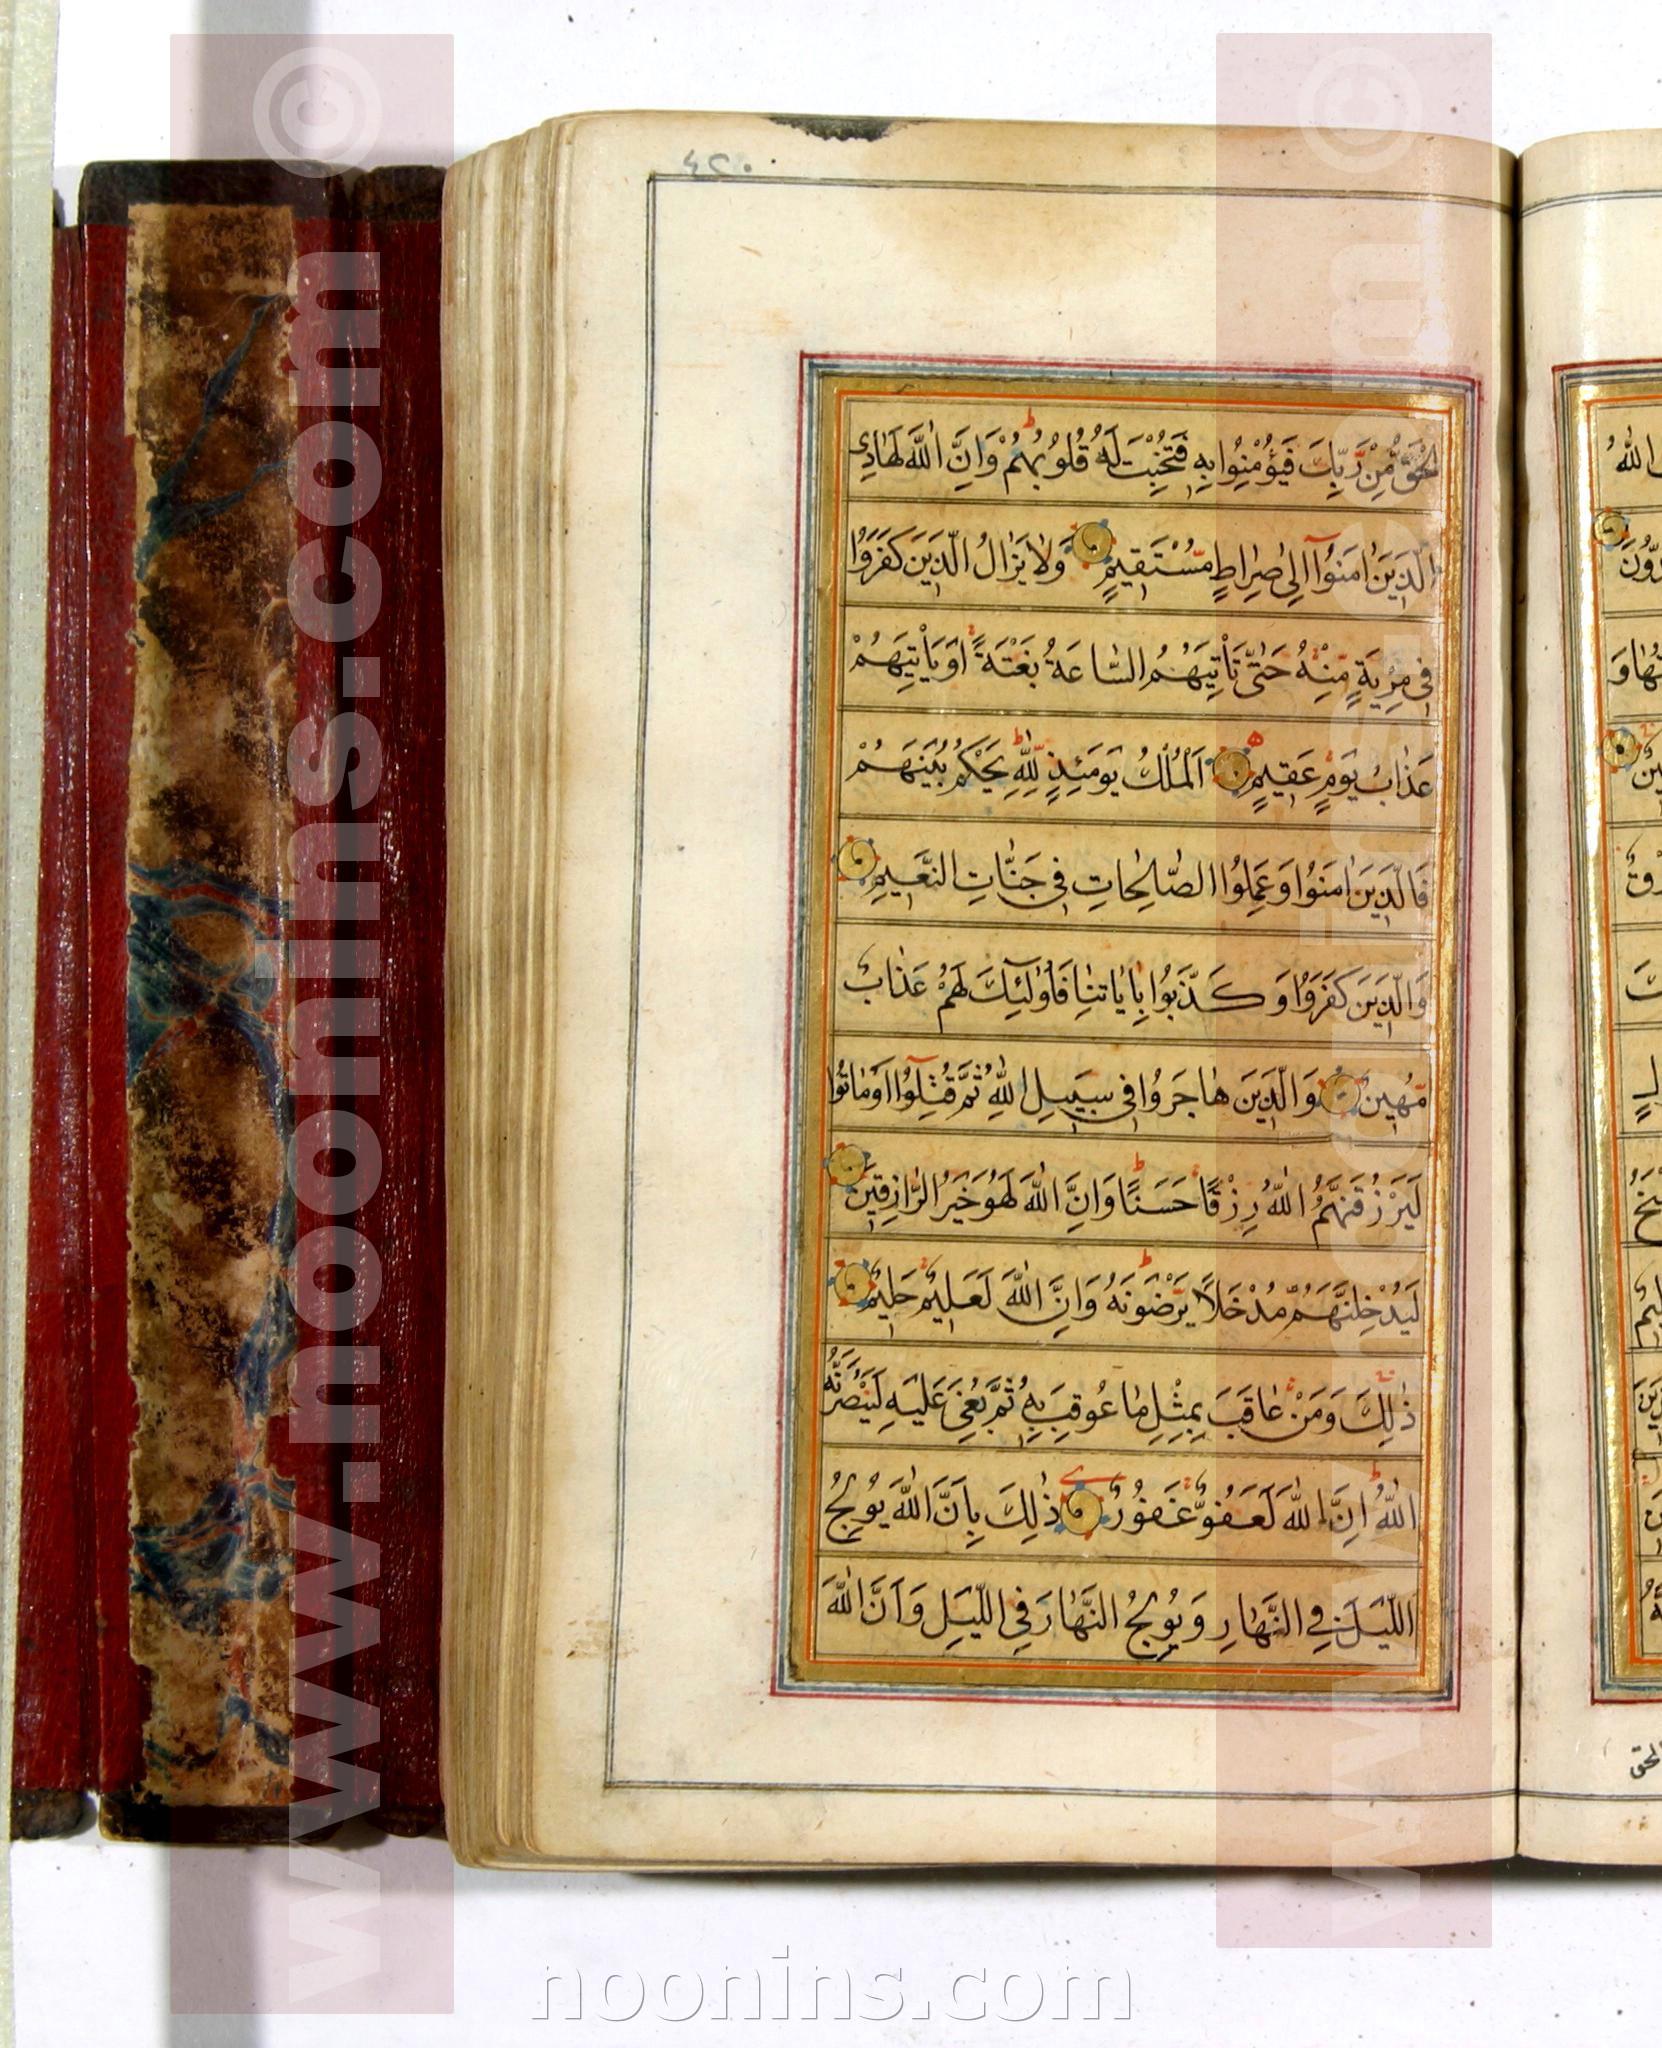 ٤٢٠
الْحَقُّ مِنْ رَبِّكَ فَيُؤْمِنُوا بِهِ فَتُخْبِتَ لَهُ قُلُوبُهُمْ وَاِنَّ اللّٰهَ لَهَادِى
الَّذِينَ اٰمَنُوٓا اِلٰى صِرَاطٍ مُسْتَقِيمٍ وَلَا يَزَالُ الَّذِينَ كَفَرُوا
فِى مِرْيَةٍ مِنْهُ حَتّٰى تَأْتِيَهُمُ السَّاعَةُ بَغْتَةً اَوْ يَأْتِيَهُمْ
عَذَابُ يَوْمٍ عَقِيمٍ اَلْمُلْكُ يَوْمَئِذٍ لِلّٰهِ يَحْكُمُ بَيْنَهُمْ
فَالَّذِينَ اٰمَنُوا وَعَمِلُوا الصَّالِحَاتِ فِى جَنَّاتِ النَّعِيمِ
وَالَّذِينَ كَفَرُوا وَكَذَّبُوا بِاٰيَاتِنَا فَاُولٰٓئِكَ لَهُمْ عَذَابٌ
مُهِينٌ وَالَّذِينَ هَاجَرُوا فِى سَبِيلِ اللّٰهِ ثُمَّ قُتِلُوٓا اَوْ مَاتُوا
لَيَرْزُقَنَّهُمُ اللّٰهُ رِزْقًا حَسَنًا وَاِنَّ اللّٰهَ لَهُوَ خَيْرُ الرَّازِقِينَ
لَيُدْخِلَنَّهُمْ مُدْخَلًا يَرْضَوْنَهُ وَاِنَّ اللّٰهَ لَعَلِيمٌ حَلِيمٌ
ذٰلِكَ وَمَنْ عَاقَبَ بِمِثْلِ مَا عُوقِبَ بِهِ ثُمَّ بُغِىَ عَلَيْهِ لَيَنْصُرَنَّهُ
اللّٰهُ اِنَّ اللّٰهَ لَعَفُوٌّ غَفُورٌ ذٰلِكَ بِاَنَّ اللّٰهَ يُولِجُ
اللَّيْلَ فِى النَّهَارِ وَيُولِجُ النَّهَارَ فِى اللَّيْلِ وَاَنَّ اللّٰهَ
www.noonins.com ©
www.noonins.com ©
noonins.com